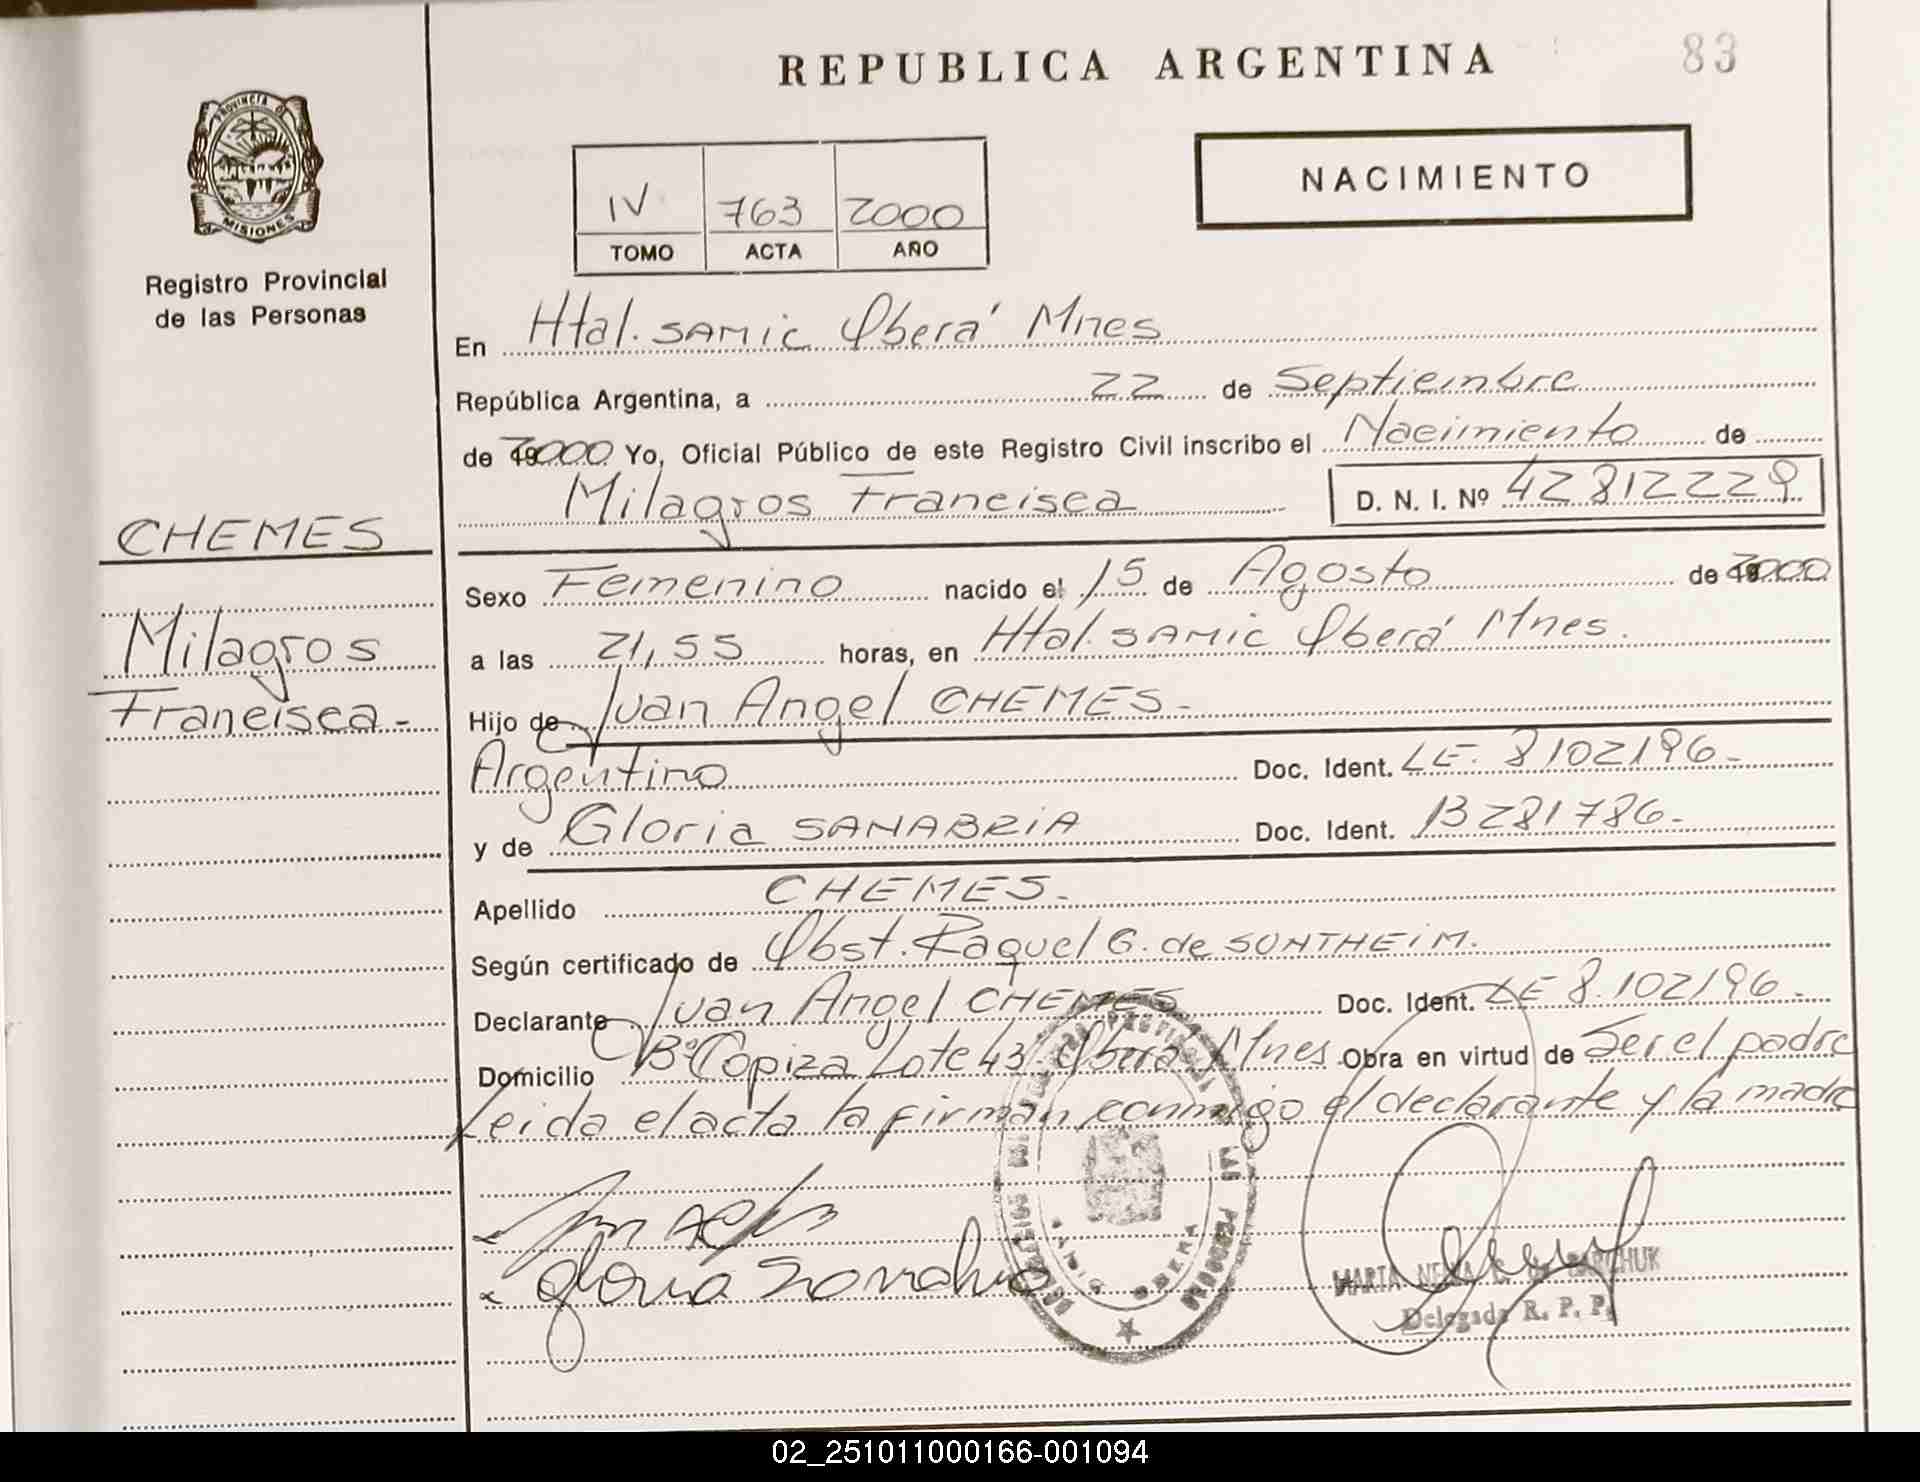 REPUBLICA ARGENTINA
83
PROVINCIA DE
MISIONES
Registro Provincial
de las Personas
IV 763 2000
TOMO ACTA AÑO
NACIMIENTO
En Htal. SAMIC Oberá Mnes
República Argentina, a 22 de Septiembre
de 2000 Yo, Oficial Público de este Registro Civil inscribo el Nacimiento de
Milagros Francisca D. N. I. Nº 42812229
CHEMES
Milagros
Francisca -
Sexo Femenino nacido el 15 de Agosto de 2000
a las 21,55 horas, en Htal. SAMIC Oberá Mnes.
Hijo de Juan Angel CHEMES -
Argentino Doc. Ident. LE. 8102196 -
y de Gloria SANABRIA Doc. Ident. 13281786 -
Apellido CHEMES -
Según certificado de Obst. Raquel G. de SONTHEIM.
Declarante Juan Angel CHEMES Doc. Ident. LE 8.102196 -
Domicilio Bº Copiza Lote 43 Oberá Mnes Obra en virtud de Ser el padre
Leida el acta la firman conmigo el declarante y la madre
Gloria Sanabria
MARTA
Delegada R. P. P.
02_251011000166-001094